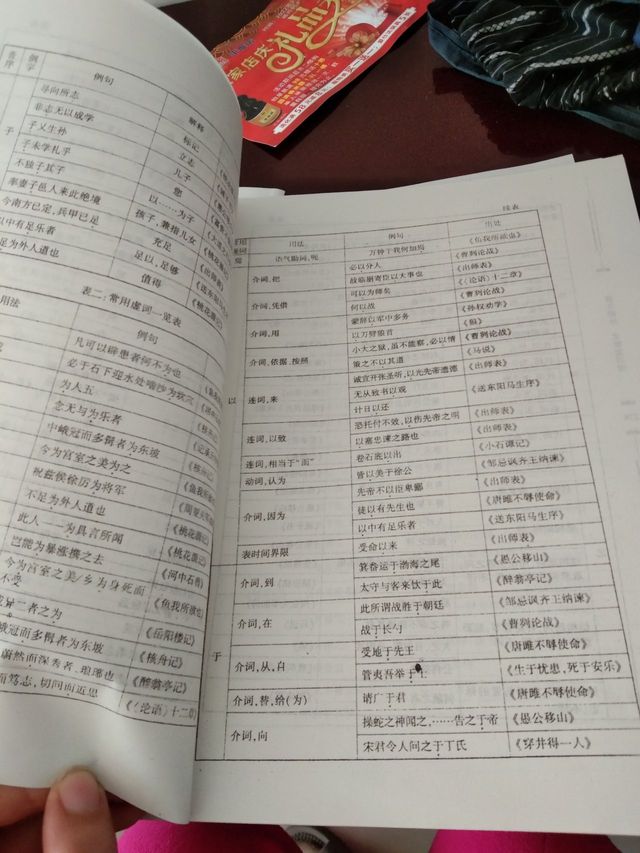 家店庆
礼
58
序
例字
例句
解释
寻向所志
标记
非志无以成学
立志
子又生孙
儿子
子未学礼乎
您
不独子其子
以……为子
率妻子邑人来此绝境
孩子,兼指儿女
今南方已定,兵甲已足
充足
以中有足乐者
足以,足够
《出师表》
足为外人道也
值得
《桃花源记》
表二:常用虚词一览表
用法
例句
凡可以辟患者何不为也
必于石下迎水处啮沙为坎穴
为人五
念无与为乐者
中峨冠而多髯者为东坡
今为宫室之美为之
祝兹侯徐厉为将军
不足为外人道也
《桃花源记》
此人一一为具言所闻
《桃花源记》
岂能为暴涨携之去
《河中石兽》
今为宫室之美/乡为身死而
不受
《鱼我所欲也》
或异二者之为
《岳阳楼记》
峨冠而多髯者为东坡
《核舟记》
蔚然而深秀者,琅琊也
《醉翁亭记》
而笃志,切问而近思
《〈论语〉十二章》
续表
用法
例句
出处
语气助词,呢
万钟于我何加焉
《鱼我所欲也》
以
介词,把
必以分人
《曹刿论战》
故临崩寄臣以大事也
《出师表》
介词,凭借
可以为师矣
《〈论语〉十二章》
何以战
《曹刿论战》
介词,用
蒙辞以军中多务
《孙权劝学》
以刀劈狼首
《狼》
介词,依据、按照
小大之狱,虽不能察,必以情
《曹刿论战》
策之不以其道
《马说》
连词,来
诚宜开张圣听,以光先帝遗德
《出师表》
无从致书以观
《送东阳马生序》
计日以还
连词,以致
恐托付不效,以伤先帝之明
《出师表》
以塞忠谏之路也
《出师表》
连词,相当于“而”
卷石底以出
《小石潭记》
动词,认为
皆以美于徐公
《邹忌讽齐王纳谏》
介词,因为
先帝不以臣卑鄙
《出师表》
徒以有先生也
《唐雎不辱使命》
以中有足乐者
《送东阳马生序》
表时间界限
受命以来
《出师表》
于
介词,到
箕畚运于渤海之尾
《愚公移山》
太守与客来饮于此
《醉翁亭记》
介词,在
此所谓战胜于朝廷
《邹忌讽齐王纳谏》
战于长勺
《曹刿论战》
介词,从,自
受地于先王
《唐雎不辱使命》
管夷吾举于士
《生于忧患,死于安乐》
介词,替,给(为)
请广于君
《唐雎不辱使命》
介词,向
操蛇之神闻之,……告之于帝
《愚公移山》
宋君令人问之于丁氏
《穿井得一人》